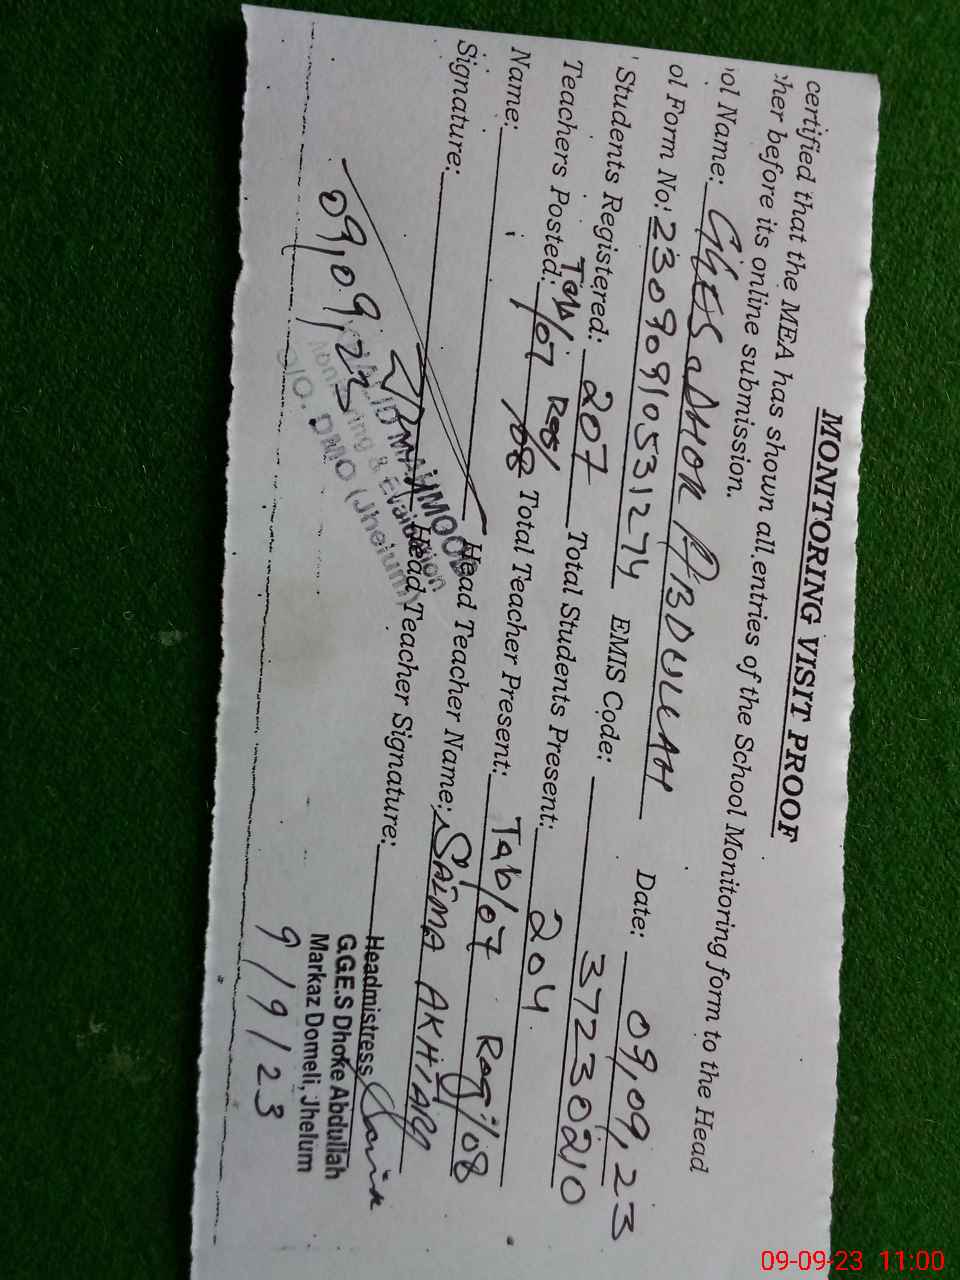 MONITORING VISIT PROOF
certified that the MEA has shown all entries of the School Monitoring form to the Head
:her before its online submission.
ol Name: GGES DHOK ABDULLAH Date: 09,09,23
ol Form No: 23090910531274 EMIS Code: 37230210
Students Registered: 207 Total Students Present: 204
Teachers Posted: Tab/07 Reg/08 Total Teacher Present: Tab/07 Reg/08
Name: Head Teacher Name: SAIMA AKHTAR
Signature: Head Teacher Signature:
09,09,23
MAHMOOD
ing & Evaluation
DMO (Jhelum)
Headmistress
G.G.E.S Dhoke Abdullah
Markaz Domeli, Jhelum
9/9/23
09-09-23 11:00